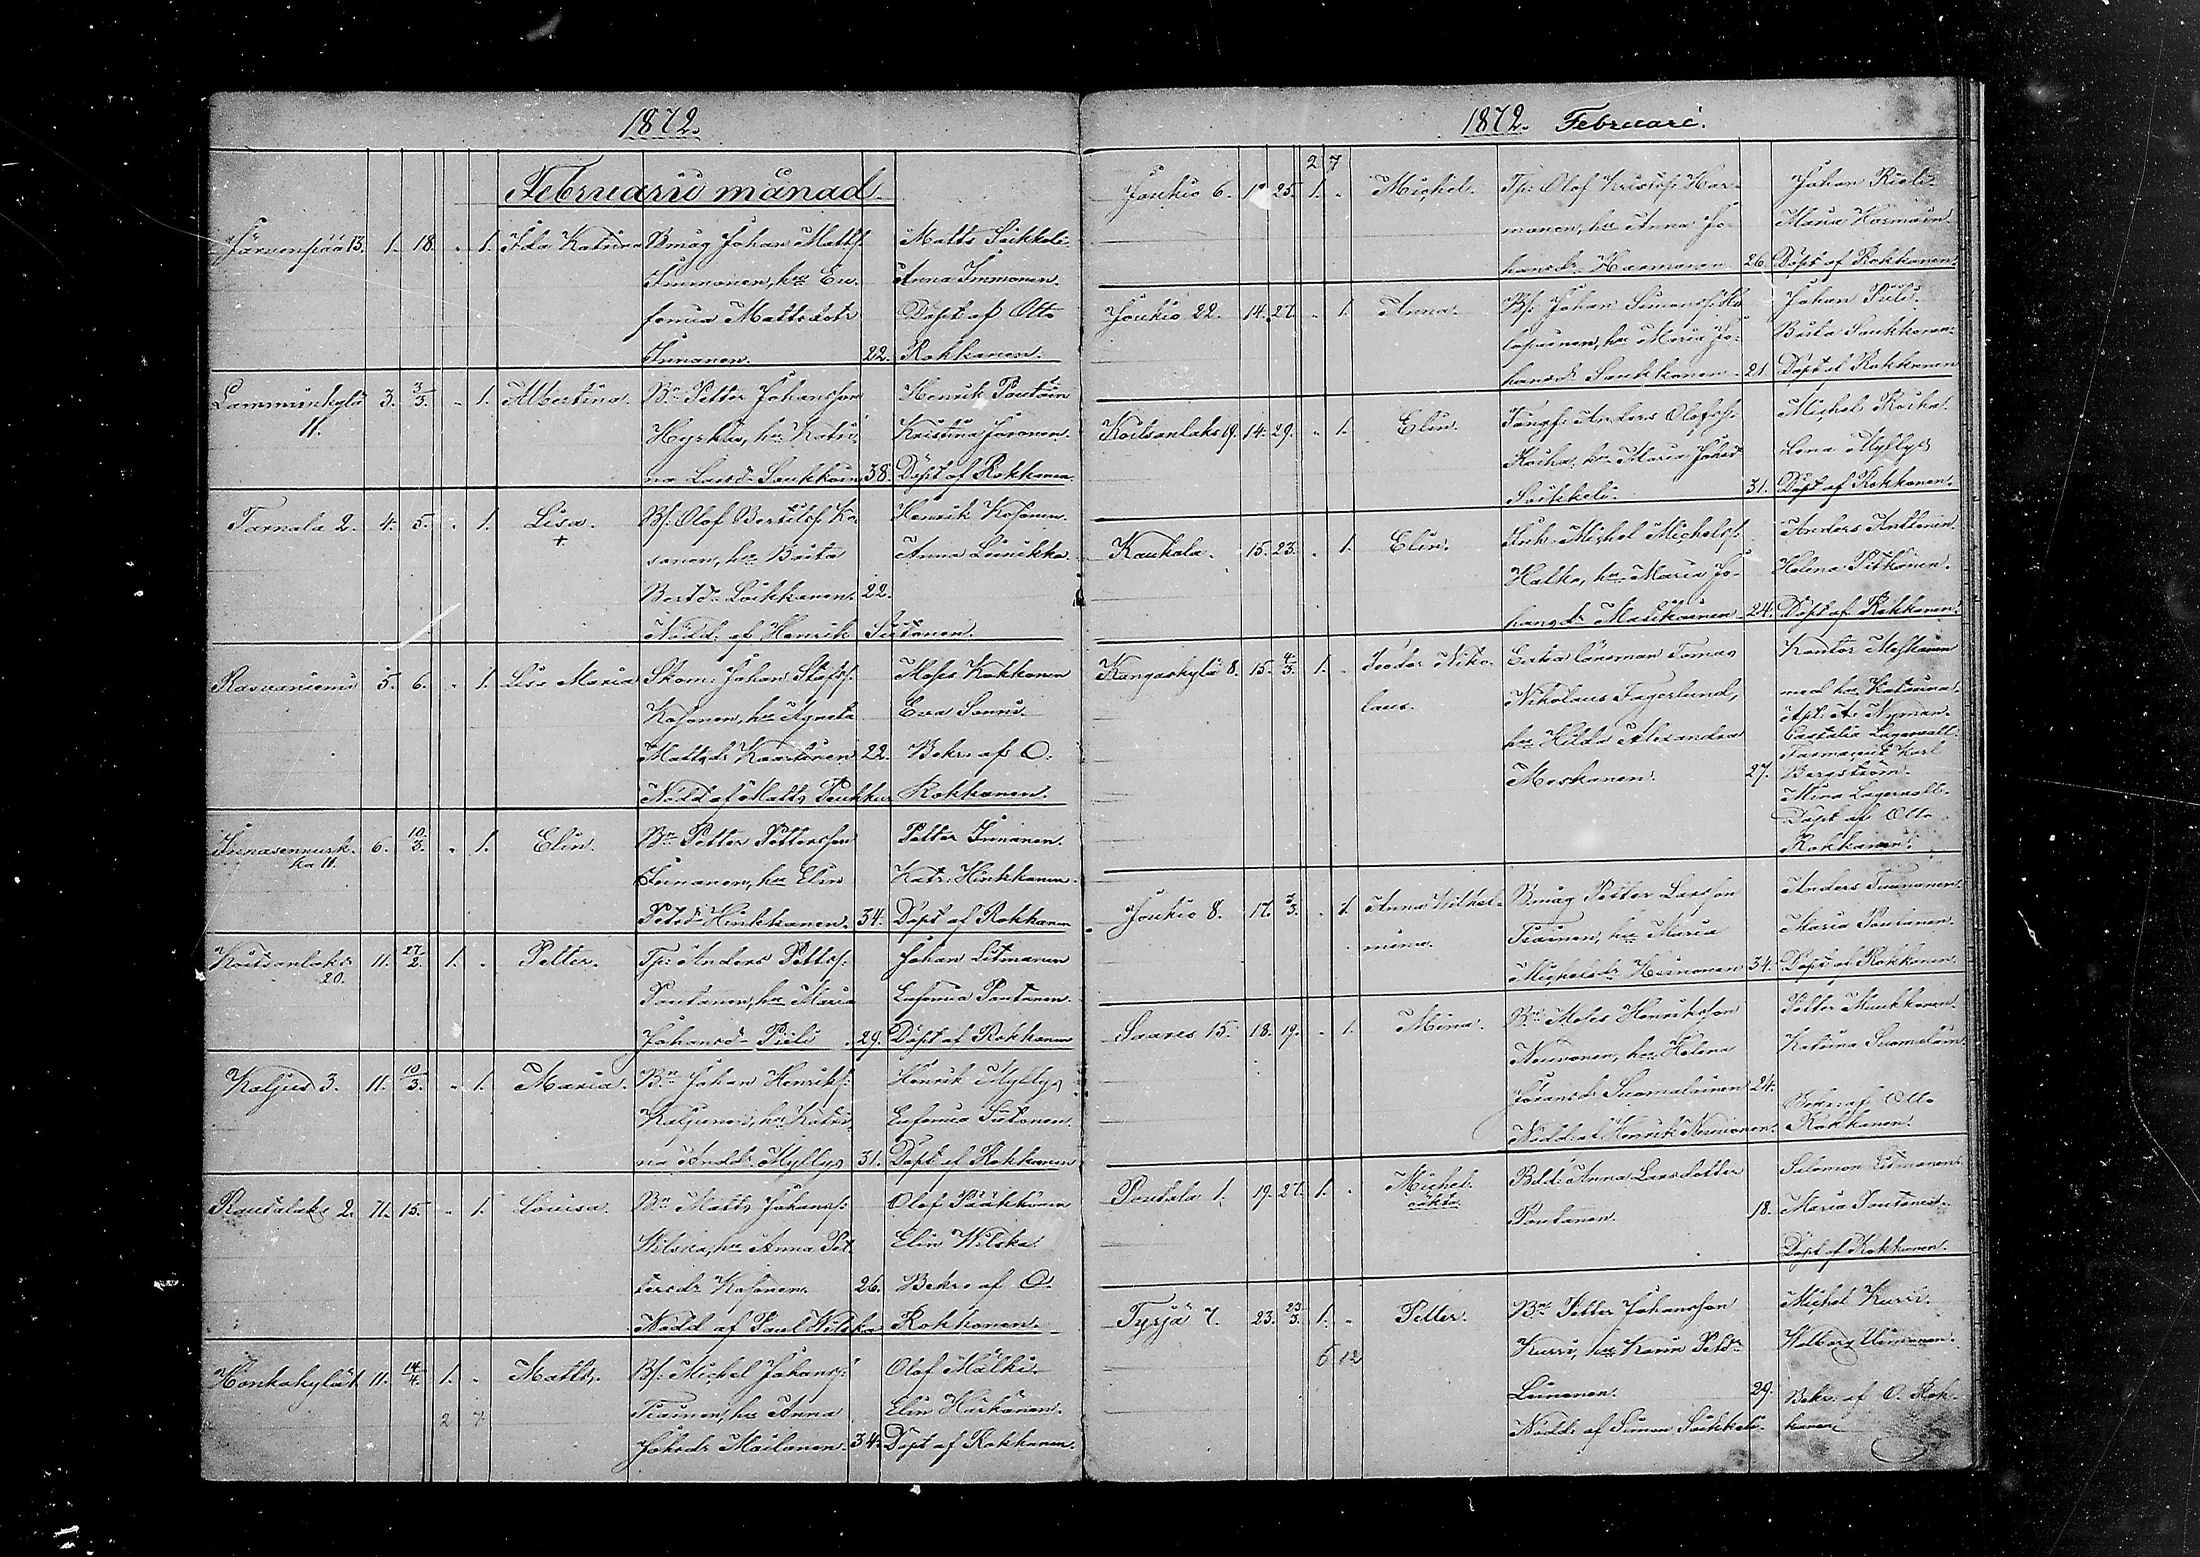 1872.
Februarii månad.
Järvenpää 13. 1. 18. „ 1. Ida Katrina Bmåg Johan Matts.
Immonen, hu Eu-
femia Mattsdotr
Immonen. 22.
Matts Sikkeli.
Anna Immonen.
Döpt af Otto
Rokkanen.
Lamminkylä 3. 3/3. „ 1. Albertina. Bn Petter Johansson
11.
Hyrkkä, hu Katri-
na Larsdr Saukkoin 38.
Henrik Poutain
Kristina Joronen.
Döpt af Rokkanen
Tarnala 2. 4. 5. „ 1. Lisa. Bs. Olof Bertils. Ko-
+
sonen, hu Brita
Bertdr Loikkanen. 22.
Nödd. af Henrik Sutonen.
Henrik Kosonen.
Anna Leinikka.
Rasvaniemi 5. 6. „ 1. Lisa Maria Skom. Johan Stafs.
Kosonen, hu Agneta
Mattsdr Kaartinen 22.
Nödd af Matts Pukkus
Moses Kokkonen
Eva Sonni.
Bekr. af O.
Rokkanen.
Innasennurk- 6. 10/3. „ 1. Elin. Bn Petter Pettersson
ka 11.
Innanen, hu Elin
Petsdr Hinkkanen. 34.
Petter Innanen.
Katr. Hinkkanen.
Döpt af Rokkanen
Koitsanlaks 11. 27/2. 1. „ Petter. Tp. Anders Petters.
20.
Poutanen, hu Maria
Johansd. Pieli 29.
Johan Litmanen
Eufemia Poutanen
Döpt af Rokkanen
Kaljus 3. 11. 10/3. „ 1. Maria. Bn Johan Henriks.
Kaljunen, hu Katri-
na Andd. Myllys 31.
Henrik Myllys
Eufemia Sutonen.
Döpt af Rokkanen
Rautalaks 2. 11. 15. „ 1. Lovisa. Bn Matts Johans.
Wilska, hu Anna Pet-
tersdr Kosonen. 26.
Nödd af Paul Wilska
Olof Pääkkönen
Elin Wilska.
Bekr. af O.
Rokkanen.
Honkakylä 1. 11. 14/4. 1. „ Matts. Bs. Michel Johans.
2 7
Tiainen, hu Anna
Johsdr Mailanen. 34.
Olof Mälki.
Elin Härkönen.
Döpt af Rokkanen.
1872. Februari.
2 7
Joukio 6. 12 25. 1. „ Michel. Tp. Olof Kristofs. Har-
manen, hu Anna Jo-
hansdr Harmanen 26.
Johan Pieli.
Maria Harmain.
Döpt af Rokkanen.
Joukio 22. 14. 27. „ 1. Anna. Bs. Johan Simonss. Ho-
lopainen, hu Maria Jo-
hansd. Saukkonen. 21.
Johan Pieli.
Brita Saukkonen.
Döpt af Rokkanen
Koitsanlaks 19. 14. 29. „ 1. Elin. Tångf. Anders Olofss.
Kosha, hu Maria Johsd.
Soikkeli. 31.
Michel Kosha.
Lena Myllys
Döpt af Rokkanen.
Kaukola. 15. 23. „ 1. Elin. Inh. Michel Michelss.
Hatka, hu Maria Jo-
hansdr Masikainen 24.
Anders Anttonen.
Helena Pitkänen.
Döpt af Rokkanen.
Kangaskylä 8. 15. 4/3. 1. „ Teodor Niko- Extra länsman Tomas
laus. Nikolaus Fagerlund,
hu Hilda Alexandra
Meskanen. 27.
Kantor Meskanen
med hu Katarina.
Apt. A. Nyman.
Castalia Lagervall.
Karl
Bergström.
Mina Lagervall.
Döpt af Otto
Rokkanen.
Joukio 8. 17. 3/3. „ 1. Anna Wilhel- Bmåg Petter Larsson
mina. Tiainen, hu Maria
Michelsdr Heinonen 34.
Anders Innanen.
Maria Poutanen.
Döpt af Rokkanen.
Saares 15. 18. 19. „ 1. Mina. Bn Moses Henriksson
Neuvonen, hu Helena
Jöransdr Suomalainen 24.
Nödd. af Henrik Neuvonen.
Petter Kuukkanen.
Katrina Suomalain.
Bekr. af Otto
Rokkanen.
Poutala 1. 19. 27. 1. „ Michel. Bdr. Anna Larsdotter
oäkta.
Poutanen. 18.
Salomon Litmanen.
Maria Poutanen.
Döpt af Rokkanen.
Tyrjä 7. 23. 23/3. 1. „ Petter. Bn Petter Johansson
5 12
Kurri, hu Karin Petdr
Leinonen. 29.
Nödd. af Simon Soikkeli.
Michel Kurri.
Walborg Uimonen.
Bekr. af O. Rok-
kanen